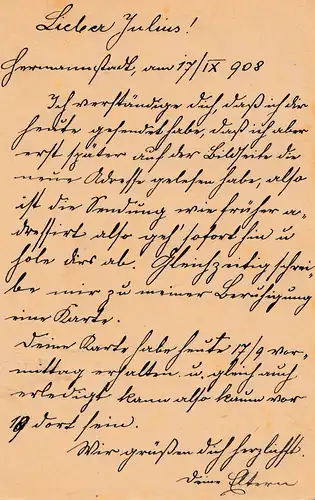 Lieber Julius!
Hermannstadt, am 17/IX 908
Ich verständige dich, daß ich dir
heute gesendet habe, daß ich aber
erst später auf der Bildseite die
neue Adresse gelesen habe, also
ist die Sendung wie früher a-
dressirt also geh' sofort hin u
hole dirs ab. Gleichzeitig schrei-
be mir zu meiner Beruhigung
eine Karte.
Deine Karte habe heute 17/9 vor-
mittag erhalten u. gleich auch
erledigt kann also kaum vor
19 dort sein.
Wir grüßen dich herzlichst.
Deine Eltern